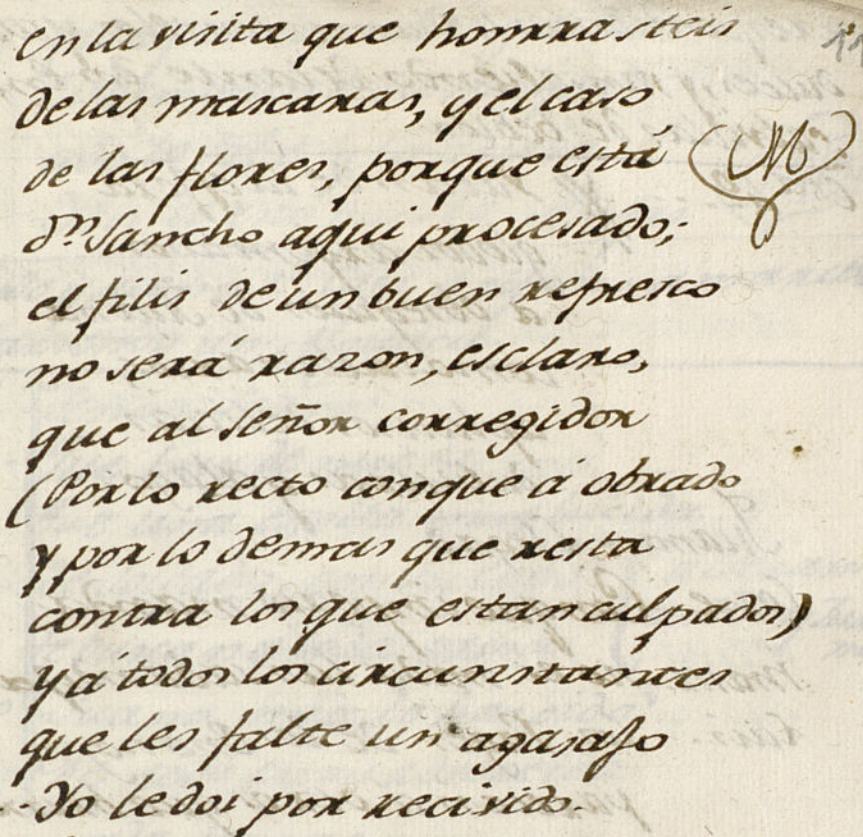 en la visita que honrrasteis
de las mascaras, y el caso
de las flores, porque está
dn. Sancho aqui procesado;
el filis de un buen refresco
no será razon, es claro,
que al señor corregidor
(Por lo recto con que á obrado
y por lo demas que resta
contra los que estan culpados)
y á todos los circunstantes
que les falte un agasajo
-Yo le doi por recivido.